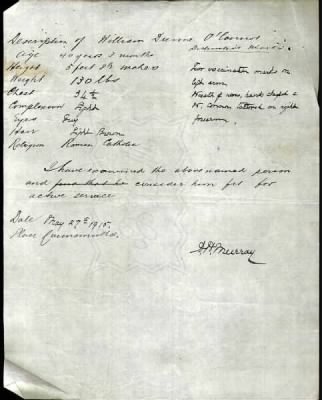 Description of William Dunne O'Connor
Distinctive Marks
Age 40 years 3 months
Height 5 feet 8½ inches
Weight 130 lbs
Chest 34½
Complexion Light
Eyes Grey
Hair Light Brown
Religion Roman Catholic
Two vaccination marks on
left arm
Wreath of roses, heart shaped &
W. Connor tattooed on right
forearm.
I have examined the above named person
and consider him fit for
active service
Date May 27th 1915.
Place
H Murray